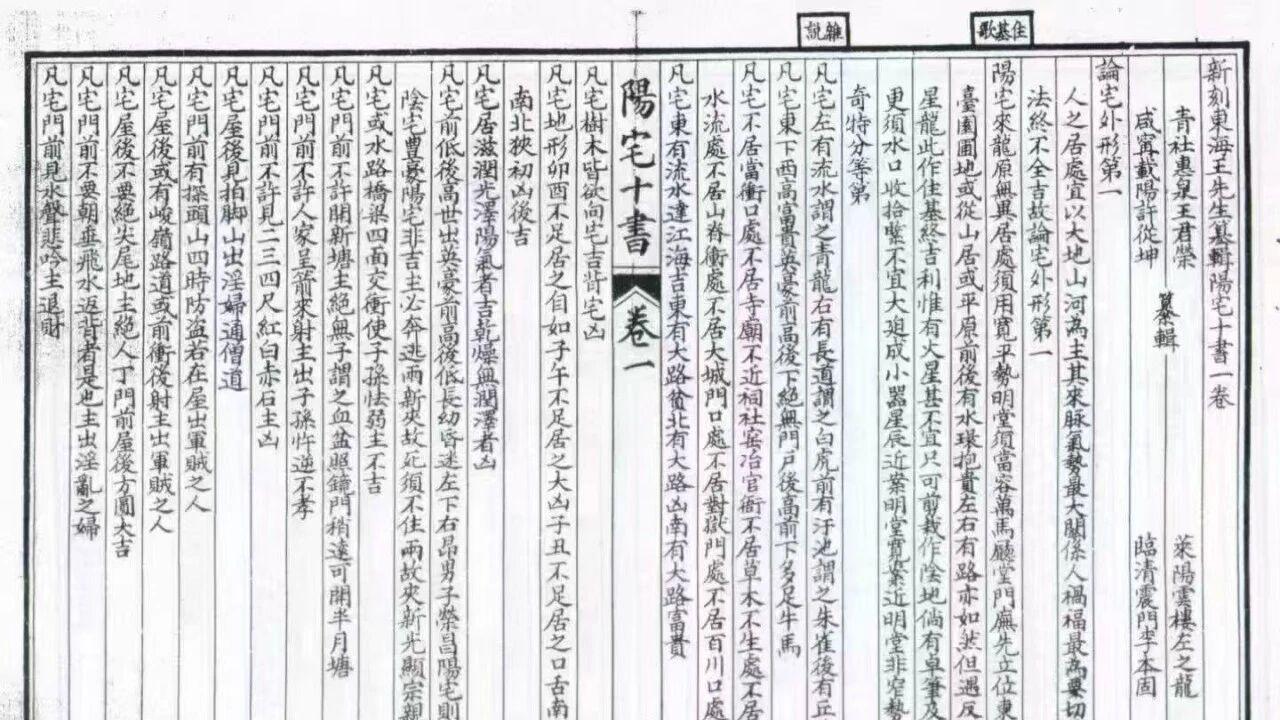 住基歌
雜說
新刻東海王先生纂輯陽宅十書一卷
青社惠泉王君榮 萊陽雲樓左之龍
咸寧載陽許從坤 纂輯 臨清震門李本固
論宅外形第一
人之居處宜以大地山河為主其來脉氣勢最大關係人禍福最為要切
法終不全吉故論宅外形第一
陽宅來龍原無異居處須用寬平勢明堂須當容萬馬廳堂門廡先立位東
臺園圃地或從山居或平原前後有水環抱貴左右有路亦如然但遇反
星龍此作住基終吉利惟有火星基不宜只可剪裁作陰地倘有卓筆及
更須水口收拾緊不宜大迫成小器星辰近案明堂寬案近明堂非窄勢
奇特分等第
凡宅左有流水謂之青龍右有長道謂之白虎前有汙池謂之朱雀後有丘
凡宅東下西高富貴英豪前高後下絕無門戶後高前下多足牛馬
凡宅不居當衝口處不居寺廟不近祠社窑冶官衙不居草木不生處不居
水流處不居山脊衝處不居大城門口處不居對獄門處不居百川口處
凡宅東有流水達江海吉東有大路貧北有大路凶南有大路富貴
陽宅十書 卷一
凡宅樹木皆欲向宅吉背宅凶
凡宅地形卯酉不足居之自如子午不足居之大凶子丑不足居之口舌南
南北狹初凶後吉
凡宅居滋潤光澤陽氣者吉乾燥無潤澤者凶
凡宅前低後高世出英豪前高後低長幼昏迷左下右昂男子榮昌陽宅則
陰宅豊豪陽宅非吉主必奔逃兩新夾故死須不住兩故夾新光顯宗親
凡宅或水路橋梁四面交衝使子孫怯弱主不吉
凡宅門前不許開新塘主絕無子謂之血盆照鏡門稍遠可開半月塘
凡宅門前不許人家呈箭來射主出子孫忤逆不孝
凡宅門前不許見二三四尺紅白赤石主凶
凡宅屋後見拍脚山出淫婦通僧道
凡宅門前有探頭山四時防盗若在屋出軍賊之人
凡宅屋後或有峻嶺路道或前衝後射主出軍賊之人
凡宅屋後不要絕尖尾地主絕人丁門前屋後方圓大吉
凡宅門前不要朝垂飛水返背者是也主出淫亂之婦
凡宅門前見水聲悲吟主退財